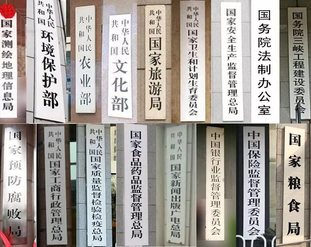 国家测绘地理信息局
中华人民共和国
环境保护部
中华人民共和国
农业部
中华人民共和国
文化部
中华人民共和国
国家旅游局
中华人民共和国
国家卫生和计划生育委员会
国家安全生产监督管理总局
国务院法制办公室
国务院三峡工程建设委员会
国家预防腐败局
中华人民共和国
国家工商行政管理总局
中华人民共和国
国家质量监督检验检疫总局
国家食品药品监督管理总局
中华人民共和国
国家新闻出版广电总局
中国银行业监督管理委员会
中国保险监督管理委员会
国家粮食局